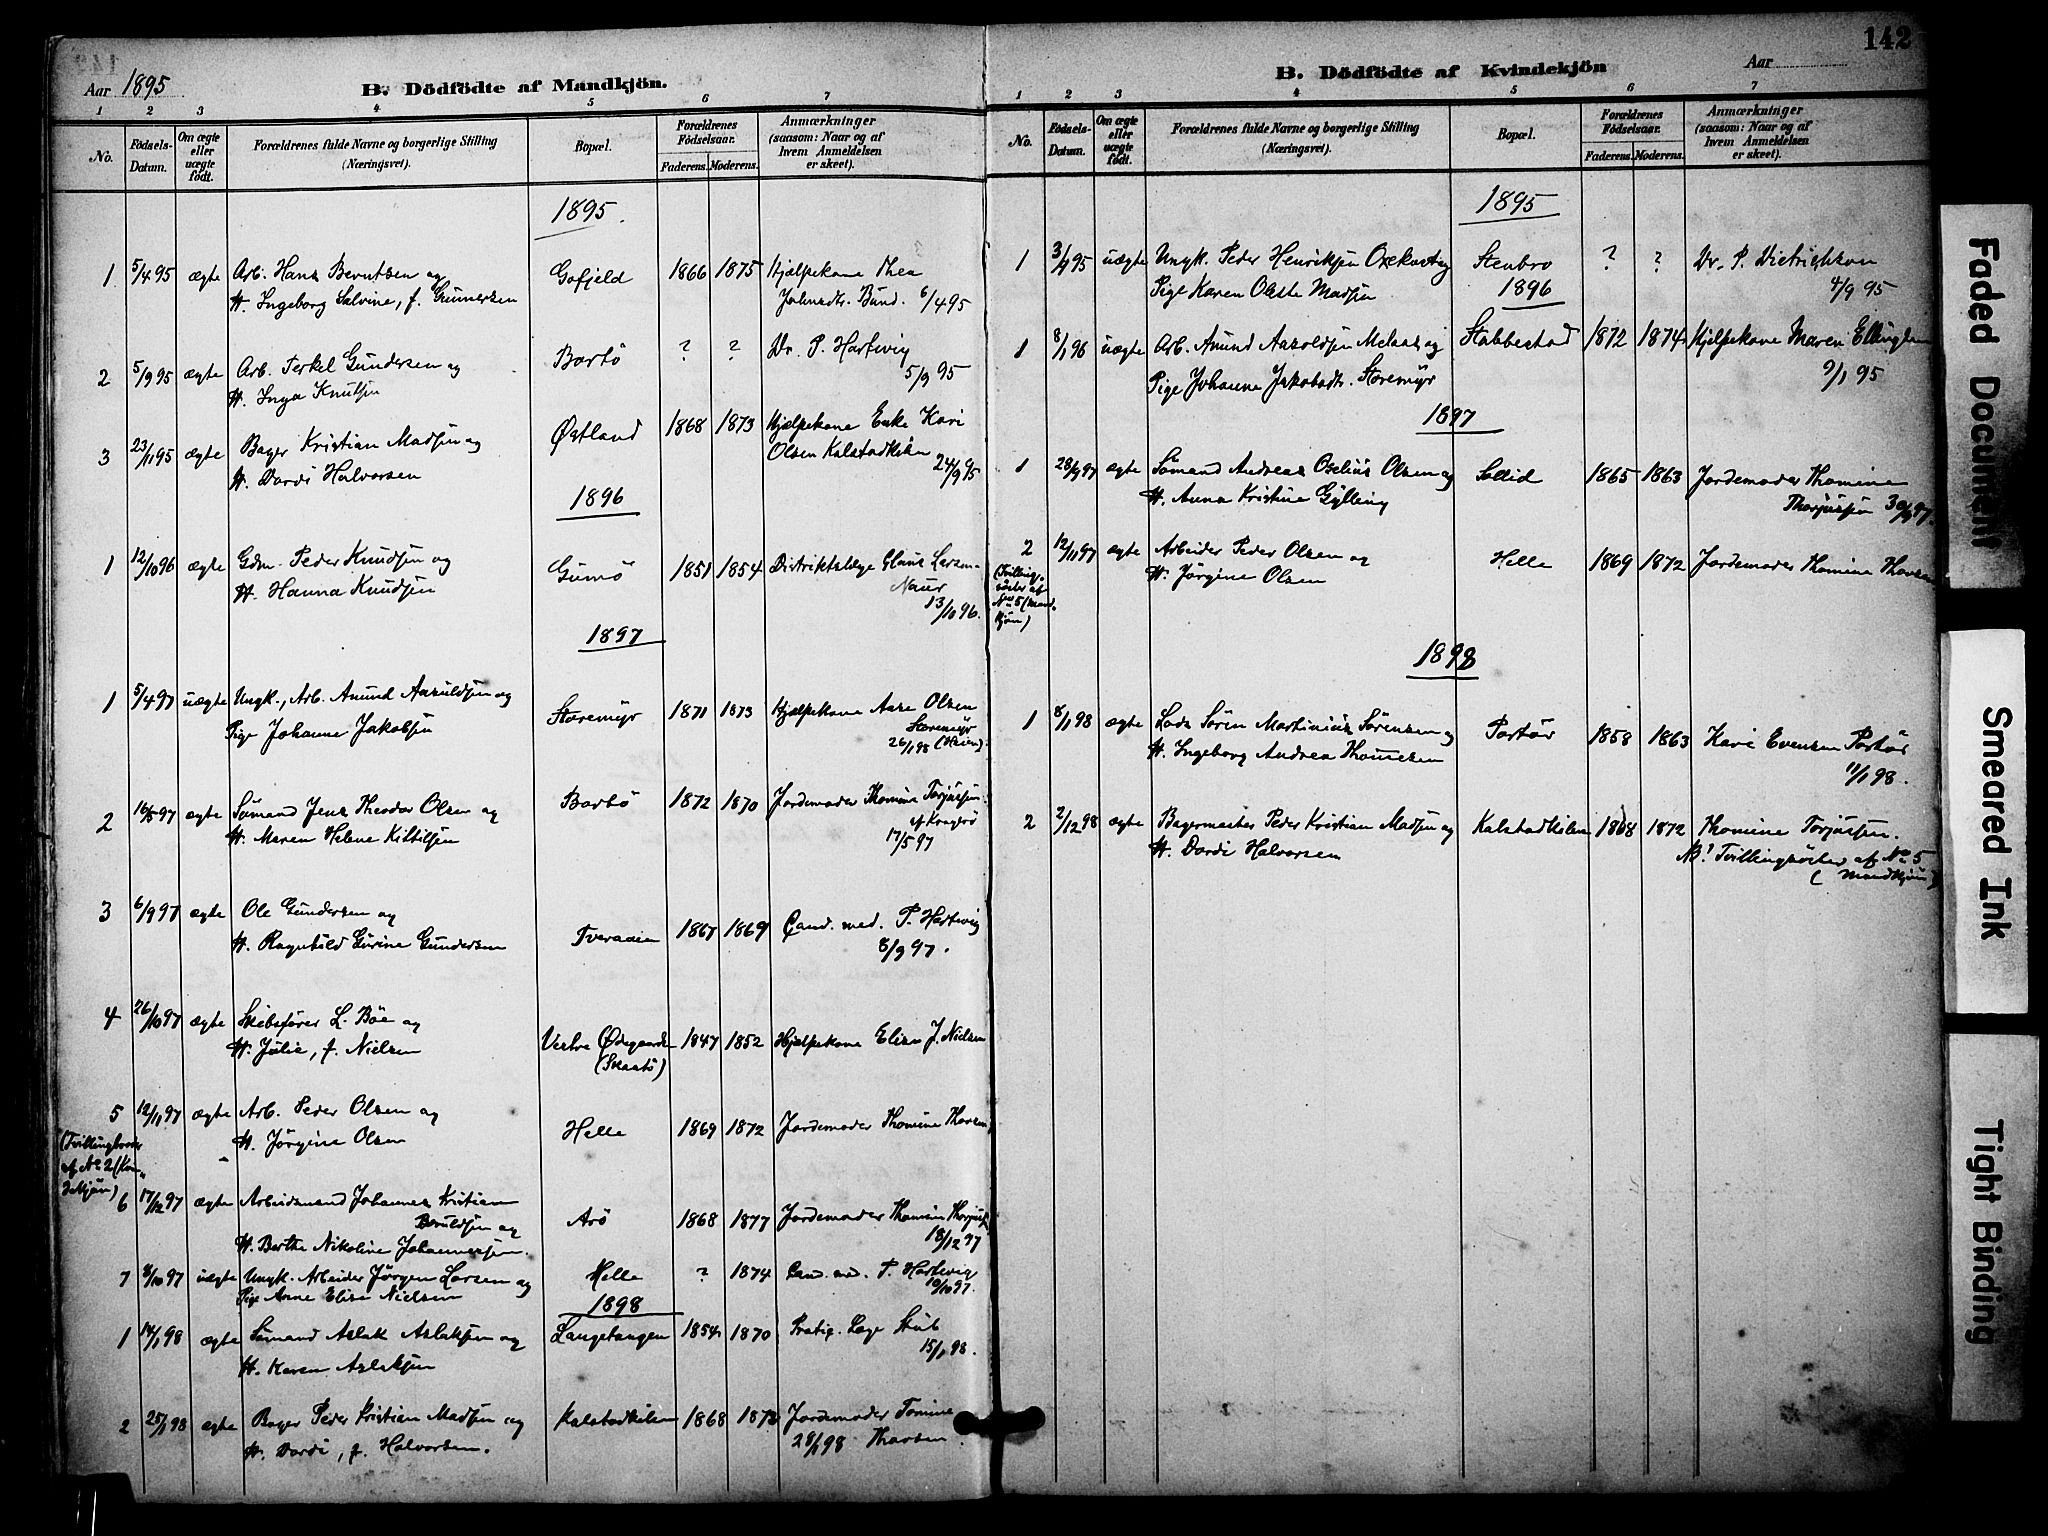 Aar 1895
B. Dödfödte af Mandkjön.
1 2 3 4 5 6 7
No.
Födsels-Datum.
Om ægte eller uægte födt.
Forældrenes fulde Navne og borgerlige Stilling
(Næringsvei).
Bopæl.
Forældrenes Födselsaar.
Faderens. Moderens.
Anmærkninger
(saasom: Naar og af
hvem Anmeldelsen
er skeet).
1895
1 5/4 95 ægte Arb. Hans Berntsen og Gofjeld 1866 1875 Hjælpekone Thea
H. Ingeborg Salvine, f. Gunnersen Johnsdtr. Bund. 6/4 95
2 5/9 95 ægte Arb. Terkel Gundersen og Bartö ? ? Dr. P. Hartvig
H. Inga Knutsen 5/9 95
3 23/11 95 ægte Bager Kristian Madsen og Østland 1868 1873 Hjælpekone Enke Kari
H. Dardi Halvorsen Olsen Kalstadkilen 24/9 95
1896
1 12/10 96 ægte Gdm. Peder Knudsen og Gumö 1851 1854 Distriktslæge Claus Larsen-
H. Hanna Knudsen Naur
13/10 96.
1897
1 5/4 97 uægte Ungk., Arb. Anund Aasuldsen og Staremyr 1871 1873 Hjælpekone Aase Olsen
Pige Johanne Jakobsen Staremyr
26/1 98 (Heien).
2 16/5 97 ægte Sömand Jens Theodor Olsen og Bartö 1872 1870 Jordemoder Thomine Torjussen
H. Maren Helene Kittilsen af Kragerö
17/5 97
3 6/9 97 ægte Ole Gundersen og Tveraaen 1867 1869 Cand. med. P. Hartvig
H. Ragnhild Gurine Gundersen 8/9 97.
4 26/10 97 ægte Skibsfører L. Böe og Vestre Ødegaarden 1847 1852 Hjælpekone Elisa J. Nielsen
H. Julie, f. Nielsen (Skaatö)
5 12/11 97 ægte Arb. Peder Olsen og Helle 1869 1872 Jordemoder Thomine Thorsen
(Tvillingbroder H. Jørgine Olsen
af No 2 (Kvin-
dekjön)
6 17/12 97 ægte Arbeidsmand Johannes Kristian Arö 1868 1877 Jordemoder Thomine Thorjuss.
Beruldsen og 18/12 97
H. Berthe Nikoline Johannessen.
7 8/10 97 uægte Ungk. Arbeider Jørgen Larsen og Helle ? 1874 Cand. med. P. Hartvig
Pige Anne Elise Nielsen 10/10 97.
1898
1 14/1 98 ægte Sömand Aslak Aslaksen og Langetangen 1854 1870 Prakt. Læge Stub
H. Karen Aslaksen 15/1 98.
2 25/1 98 ægte Bager Peder Kristian Madsen og Kalstadkilen 1868 1872 Jordemoder Tomine
H. Dardi, f. Halvorsen. 28/1 98 Thorsen.
142
B. Dödfödte af Kvindekjön
Aar
1 2 3 4 5 6 7
No.
Födsels-Datum.
Om ægte eller uægte födt.
Forældrenes fulde Navne og borgerlige Stilling
(Næringsvei).
Bopæl.
Forældrenes Födselsaar.
Faderens. Moderens.
Anmærkninger
(saasom: Naar og af
hvem Anmeldelsen
er skeet).
1895
1 3/9 95 uægte Ungk. Peder Henriksen og Stenbro ? ? Dr. P. Dietrichson
Pige Karen Oleste Madsen 4/9 95
1896
1 8/1 96 uægte Arb. Anund Aasoldsen Melaas og Stabbestad 1872 1874 Hjelpekone Maren Ellingsen
Pige Johanne Jakobsdtr. Staremyr 9/1 95
1897
1 28/9 97 ægte Sömand Andreas Oxelius Olsen og Sollid 1865 1863 Jordemoder Thomine
H. Anna Kristine Gylling Thorjussen 30/9 97.
2 12/11 97 ægte Arbeider Peder Olsen og Helle 1869 1872 Jordemoder Thomine Thorsen
(Tvilling- H. Jørgine Olsen
söster af
No 5 (Mand-
kjön)
1898
1 8/1 98 ægte Lods Sören Martinius Sørensen og Portör 1858 1863 Kari Evensen Portör
H. Ingeborg Andrea Thomesen 11/1 98.
2 2/12 98 ægte Bagermester Peder Kristian Madsen og Kalstadkilen 1868 1872 Thomine Torjussen.
H. Dardi Halvorsen NB! Tvillingsöster af No 5
(Mandkjön)
Faded Document
Smeared Ink
Tight Binding